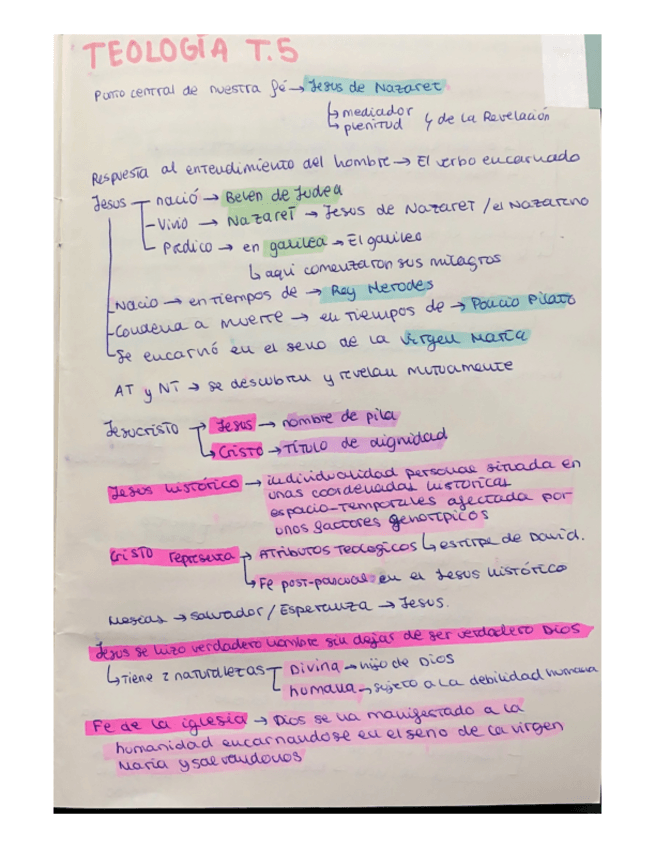 TEOLOGÍA T.5
Punto central de nuestra fé → Jesus de Nazaret
↳ mediador
↳ plenitud y de la Revelación
Respuesta al entendimiento del hombre → El verbo encarnado
Jesus nació → Belen de Judea
Vivio → Nazaret → Jesus de Nazaret / el Nazareno
Predico → en galilea → El galileo
↳ aqui comenzaron sus milagros
Nacio → en tiempos de → Rey Herodes
Condena a muerte → en tiempos de → Poncio Pilato
Se encarnó en el seno de la virgen María
AT y NT → se descubren y revelan mutuamente
Jesucristo → Jesus → nombre de pila
↳ Cristo → Título de dignidad
Jesus histórico → individualidad personal situada en
unas coordenadas historicas
espacio-temporales afectada por
unos factores genotipicos
Cristo representa → Atributos teologicos ↳ estirpe de David.
↳ Fe post-pascual en el Jesus histórico
Mesías → salvador / Esperanza → Jesus.
Jesus se hizo verdadero hombre sin dejar de ser verdadero Dios
↳ tiene 2 naturalezas Divina → hijo de Dios
humana → sujeto a la debilidad humana
Fe de la iglesia → Dios se ha manifestado a la
humanidad encarnandose en el seno de la virgen
María y salvandonos